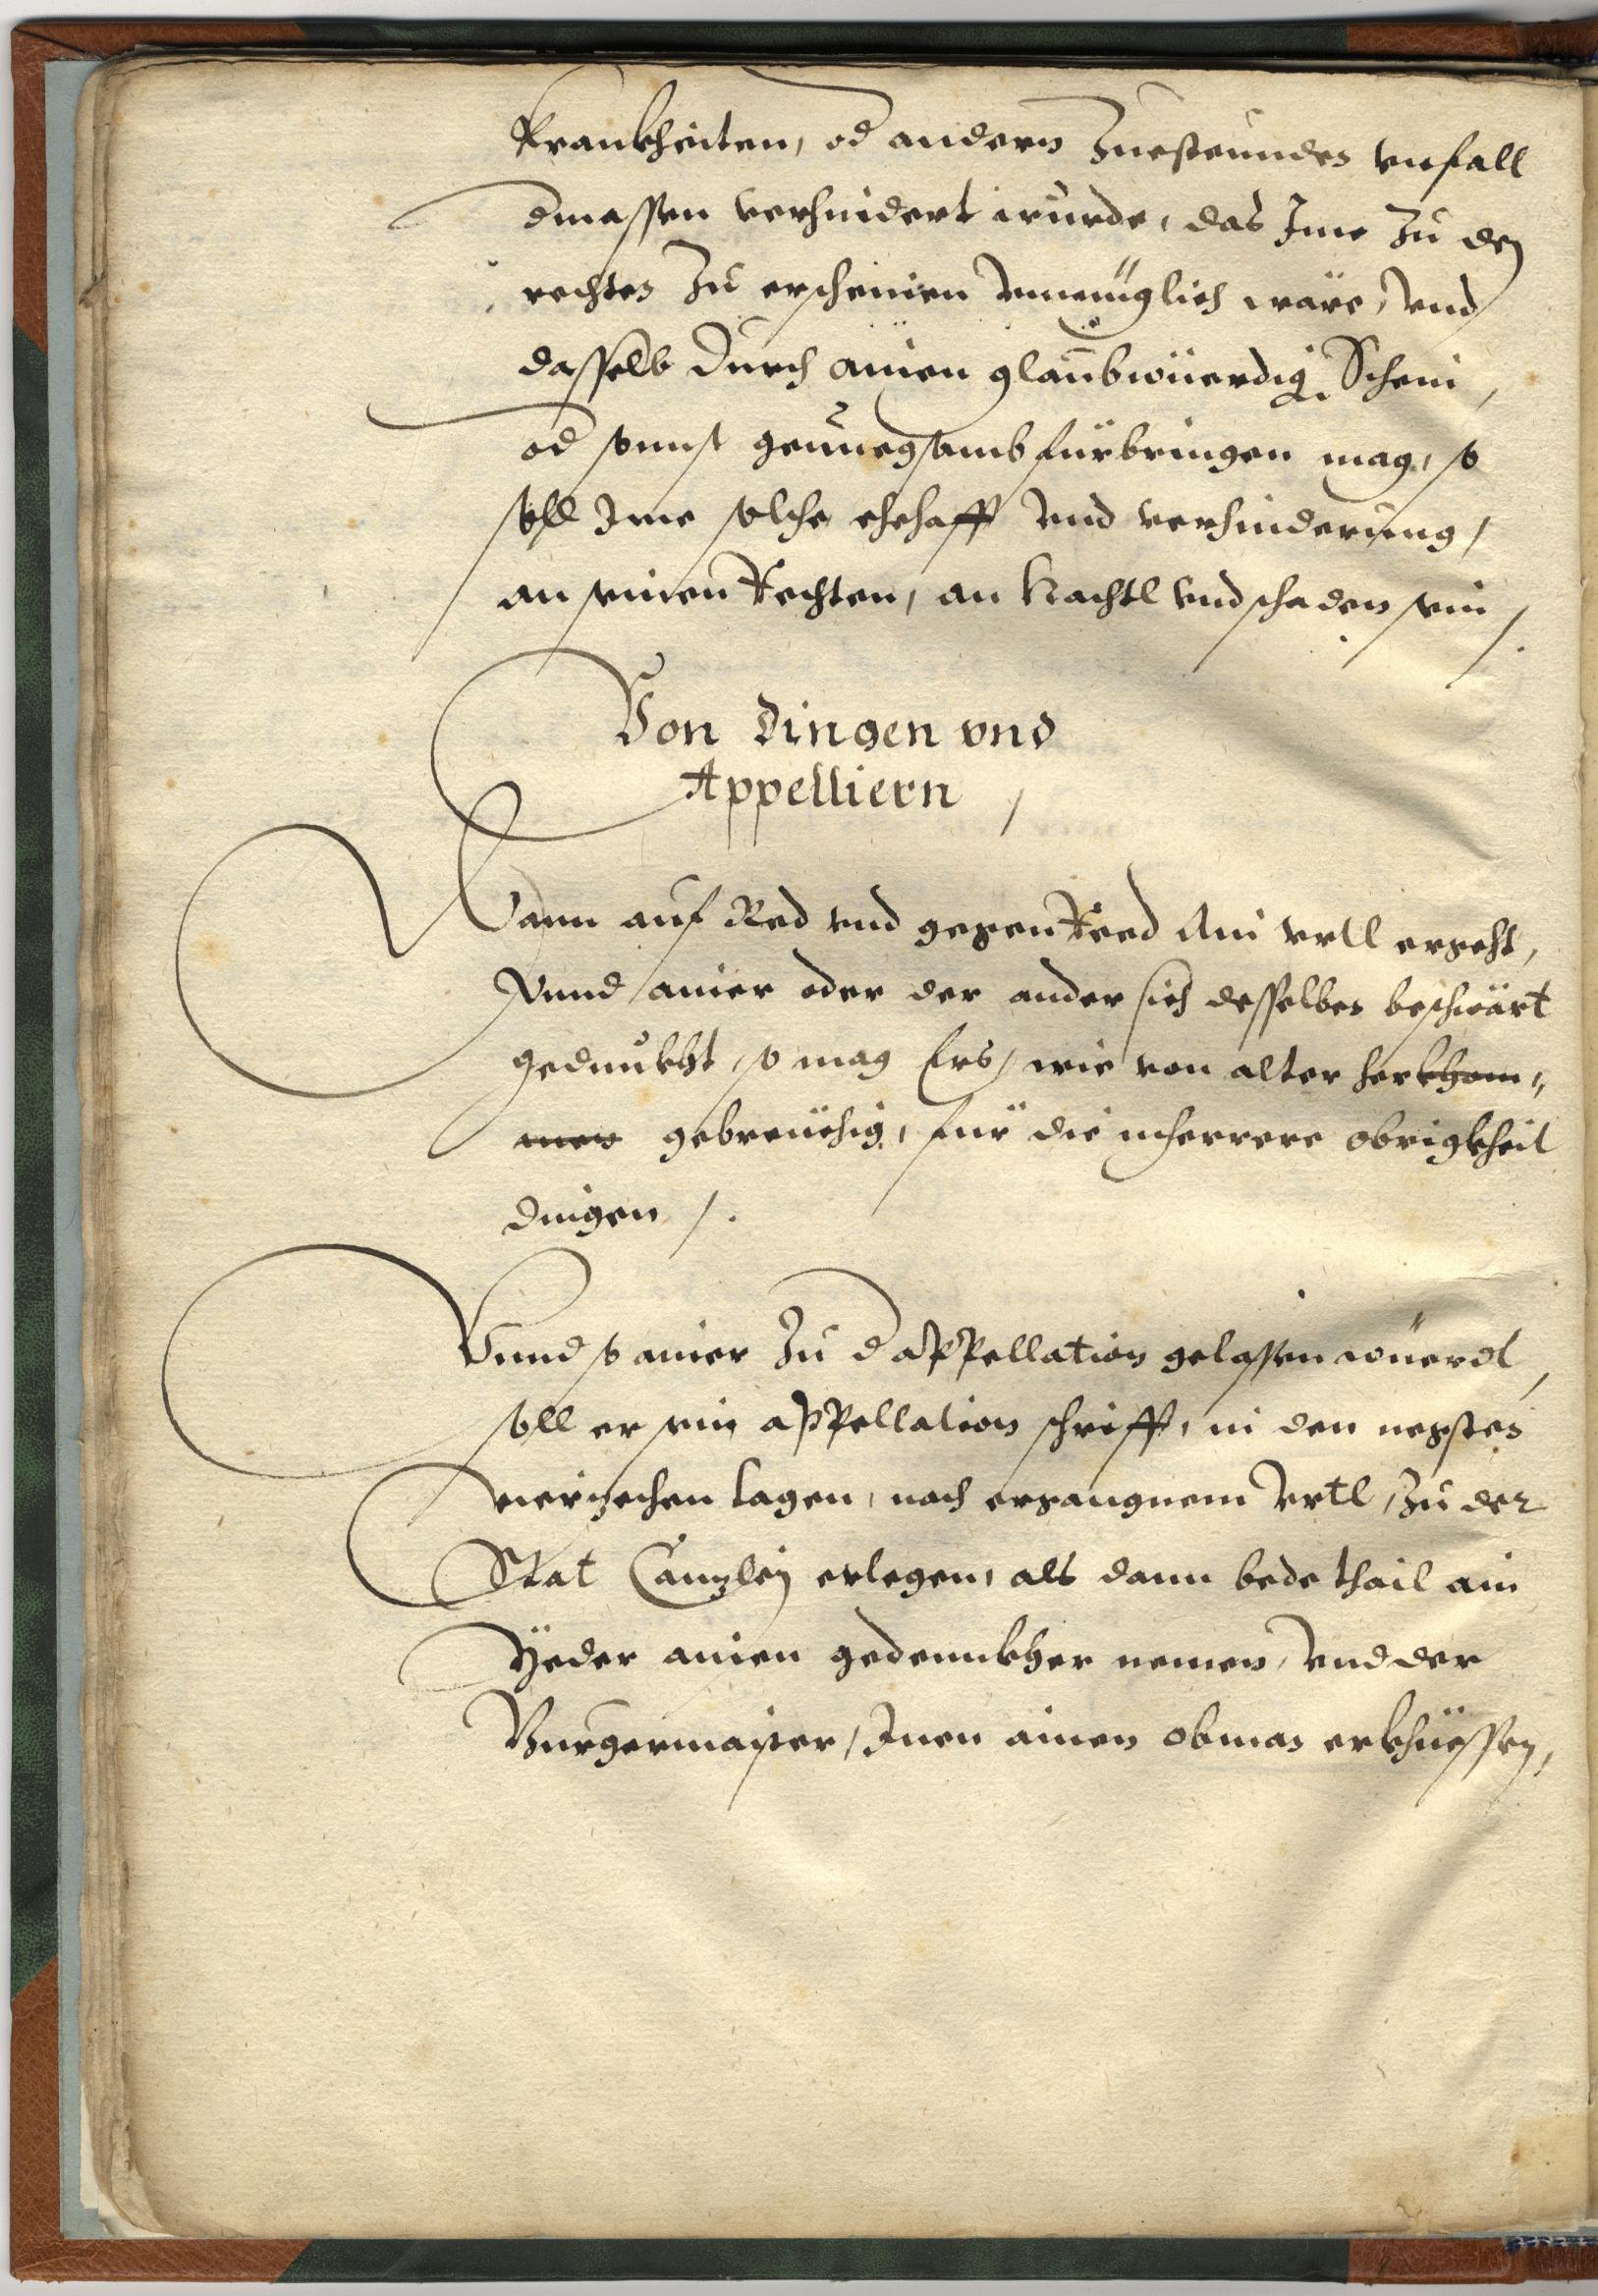 Krankheiten, od andern Zuesteunden vnfall
dmassen verhindert wurde, das Ime Zu den
rechten Zu erscheinen vnmüglich wäre, vnd
dasselb durch ainen glaubwüerdig Schein,
od sonnst genuegsamb fürbringen mag, so
soll Ime solche ehehafft vnd verhinderung,
an seinen Rechten, an Nachtl vnd schaden sein /.
Von Dingen vnd
Appelliern /
Wann auf Red vnd gegen Reed Ain vrtl ergeht,
Vnnd ainer oder der ander sich desselben beschwärt
gedunkht, so mag Ers, wie von alter herkhom,,
men gebreüchig, für die meherrere obrigkheit
dingen /.
Vnnd so ainer Zu d appellation gelassen wüerdt,
soll er sein appellation schrifft, in den negsten
vierzechen tagen, nach ergangnem vrtl, Zu der
Stat Canzley erlegen, als dann bede thail ain
Yeder ainen gedennkher nemen, vnd der
Burgermaister, Inen ainen obman erkhüessen,